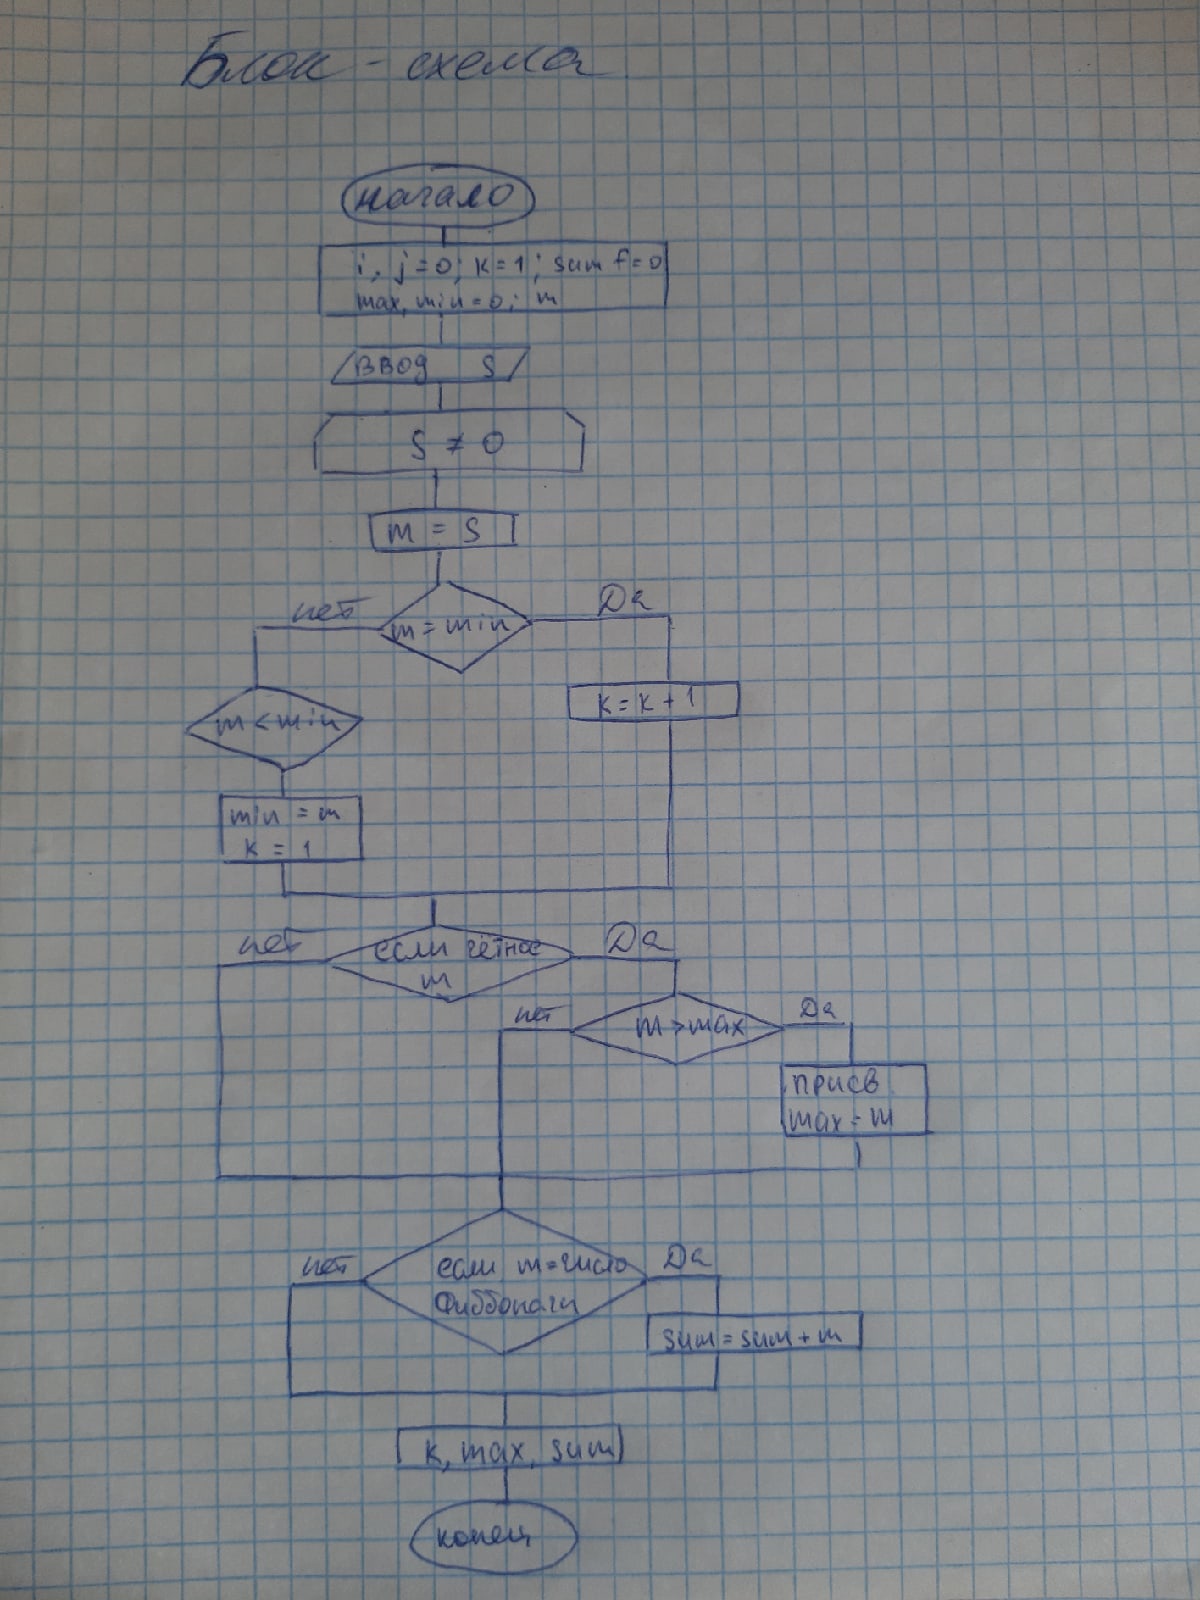 Блок - схема
начало
i, j=0; k=1; sum f=0
max, min=0; m
ввод S
S ≠ 0
m = S
нет
m = min
Да
m < min
k = k + 1
min = m
k = 1
нет
если чётное
m
Да
нет
m > max
Да
присв
max = m
нет
если m=число
Фиббоначи
Да
sum = sum + m
k, max, sum
конец